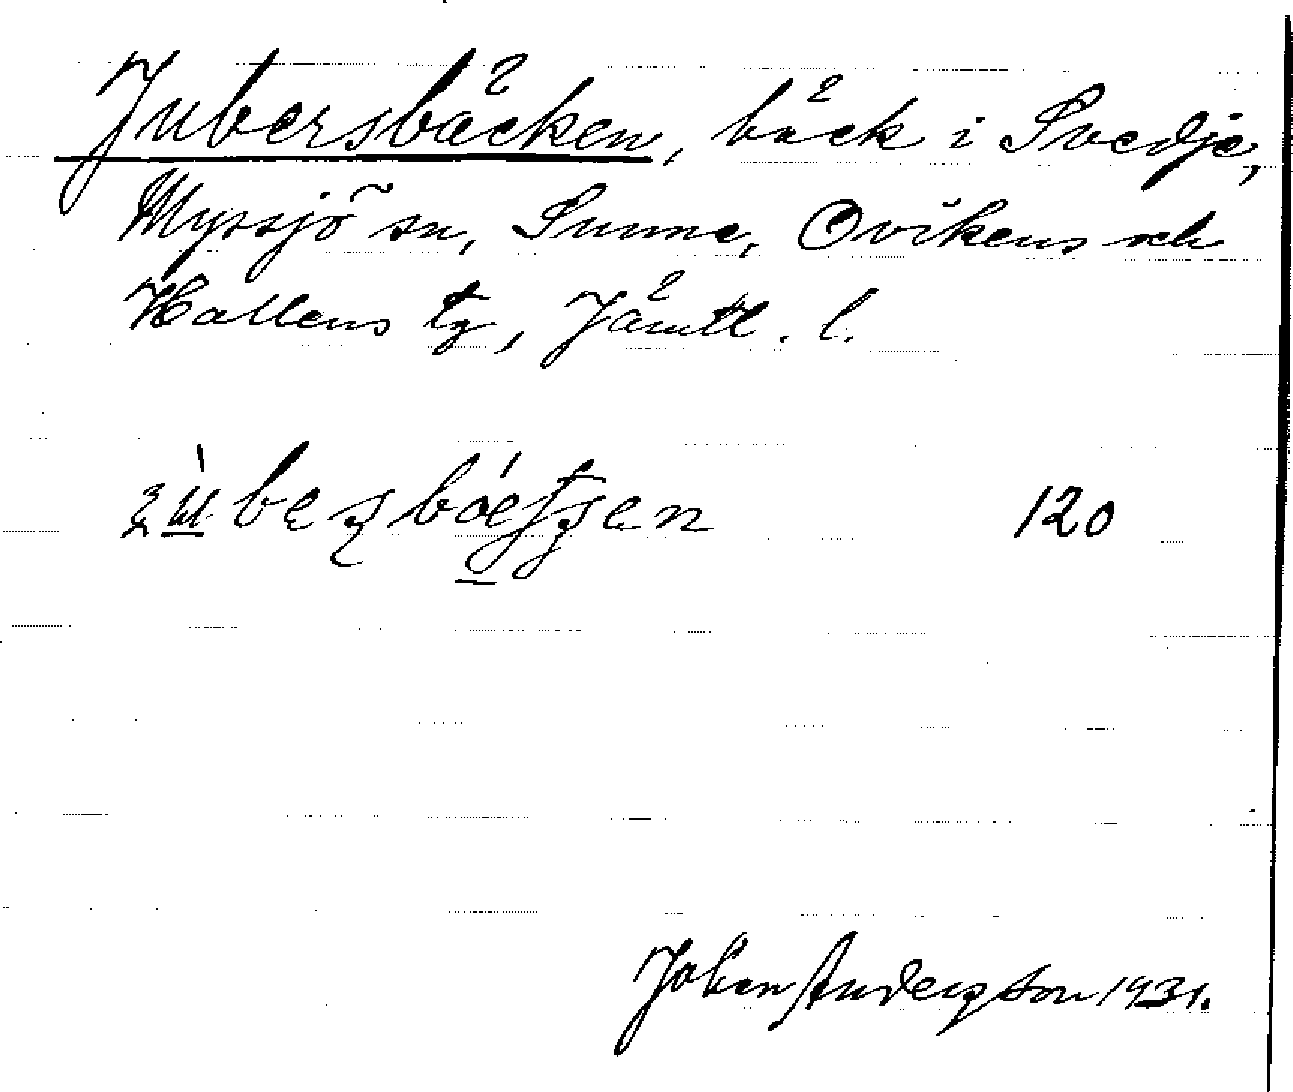 Jubersbäcken, bäck i Svedje,
Myssjö sn, Sunne, Ovikens och
Hallens tg, Jämtl. l.
120
Johan Andersson 1931.